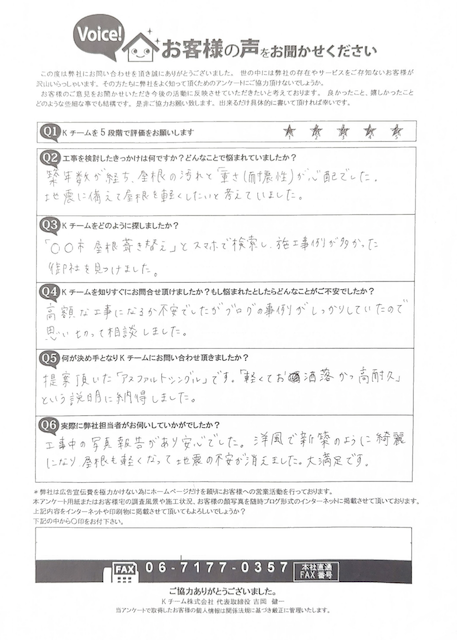 Voice!
お客様の声をお聞かせください
この度は弊社にお問い合わせを頂き誠にありがとうございました。 世の中には弊社の存在やサービスをご存知ないお客様が
沢山いらっしゃいます。その方たちに弊社をよく知って頂くためのアンケートにご協力頂けないでしょうか。
お客様のご意見をお聞かせいただき今後の活動に反映させていただきたいと考えております。 良かったこと、嬉しかったこと
どのような些細な事でも結構です。是非ご協力お願い致します。出来るだけ具体的に書いて頂ければ幸いです。
Q1 Kチームを5段階で評価をお願いします ★ ★ ★ ★ ★
Q2 工事を検討したきっかけは何ですか？どんなことで悩まれていましたか？
築年数が経ち、屋根の汚れと「重さ(耐震性)」が心配でした。
地震に備えて屋根を軽くしたいと考えていました。
Q3 Kチームをどのように探しましたか？
「〇〇市 屋根 葺き替え」とスマホで検索し、施工事例が多かった
御社を見つけました。
Q4 Kチームを知りすぐにお問合せ頂けましたか？もし悩まれたとしたらどんなことがご不安でしたか？
高額な工事になるか不安でしたがブログの事例がしっかりしていたので
思い切って相談しました。
Q5 何が決め手となりKチームにお問い合わせ頂きましたか？
提案頂いた「アスファルトシングル」です。「軽くてお洒落かつ高耐久」
という説明に納得しました。
Q6 実際に弊社担当者がお伺いしていかがでしたか？
工事中の写真報告があり安心でした。洋風で新築のように綺麗
になり、屋根も軽くなって地震の不安が消えました。大満足です。
＊弊社は広告宣伝費を極力かけない為にホームページだけを頼りにお客様への営業活動を行っております。
本アンケート用紙またはお客様宅の調査風景や施工状況、お客様の顔写真を随時ブログ形式のインターネットに掲載させて頂いております。
上記内容をインターネットや印刷物に掲載させて頂いてもよろしいでしょうか？
下記の中から〇印をお付下さい。
FAX 06-7177-0357 本社直通FAX番号
ご協力ありがとうございました。
Kチーム株式会社 代表取締役 吉岡 健一
当アンケートで取得したお客様の個人情報は関係法規に基づき厳正に管理いたします。